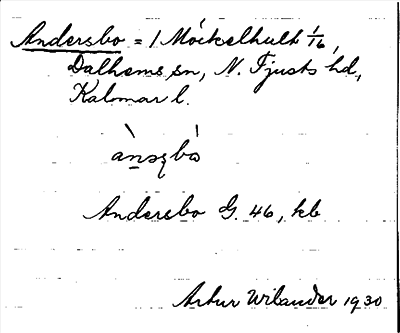 Andersbo = 1 Möckelhult 1/16,
Dalhems sn, N. Tjusts hd,
Kalmar l.
Andersbo G. 46, kb
Artur Wilander 1930